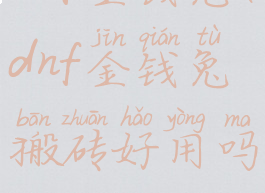 jīn qián tù
dnf金钱兔
bān zhuān hǎo yòng ma
搬砖好用吗